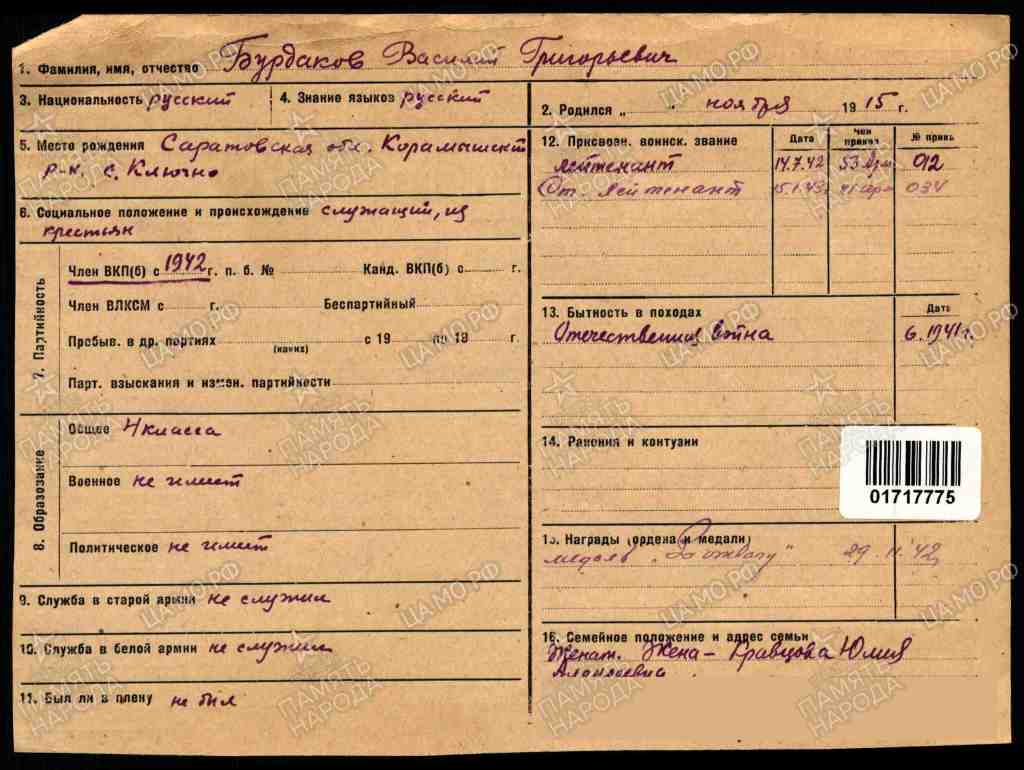 1. Фамилия, имя, отчество Бурдаков Василий Григорьевич
3. Национальность русский
4. Знание языков русский
2. Родился „ " ноября 1915 г.
5. Место рождения Саратовская обл. Корамышский
р-н, с. Ключи
6. Социальное положение и происхождение служащий, из
крестьян
7. Партийность
Член ВКП(б) с 1942 г. п. б. № Канд. ВКП(б) с г.
Член ВЛКСМ с г. Беспартийный
Пребыв. в др. партиях с 19 по 19 г.
(каких)
Парт. взыскания и измен. партийности
8. Образование
Общее 4 класса
Военное не имеет
Политическое не имеет
9. Служба в старой армии не служил
10. Служба в белой армии не служил
11. Был ли в плену не был
12. Присвоен. воинск. звание Дата Чей приказ № прик.
лейтенант 14.7.42 53 Арм 012
Ст. лейтенант 15.1.43 41 арм 034
13. Бытность в походах Дата
Отечественная война 6.1941 г.
14. Ранения и контузии
01717775
15. Награды (ордена и медали)
медаль „За отвагу" 29.11.42
16. Семейное положение и адрес семьи
Женат. Жена – Кравцова Юлия
ПАМЯТЬ НАРОДА
ЦАМО.РФ